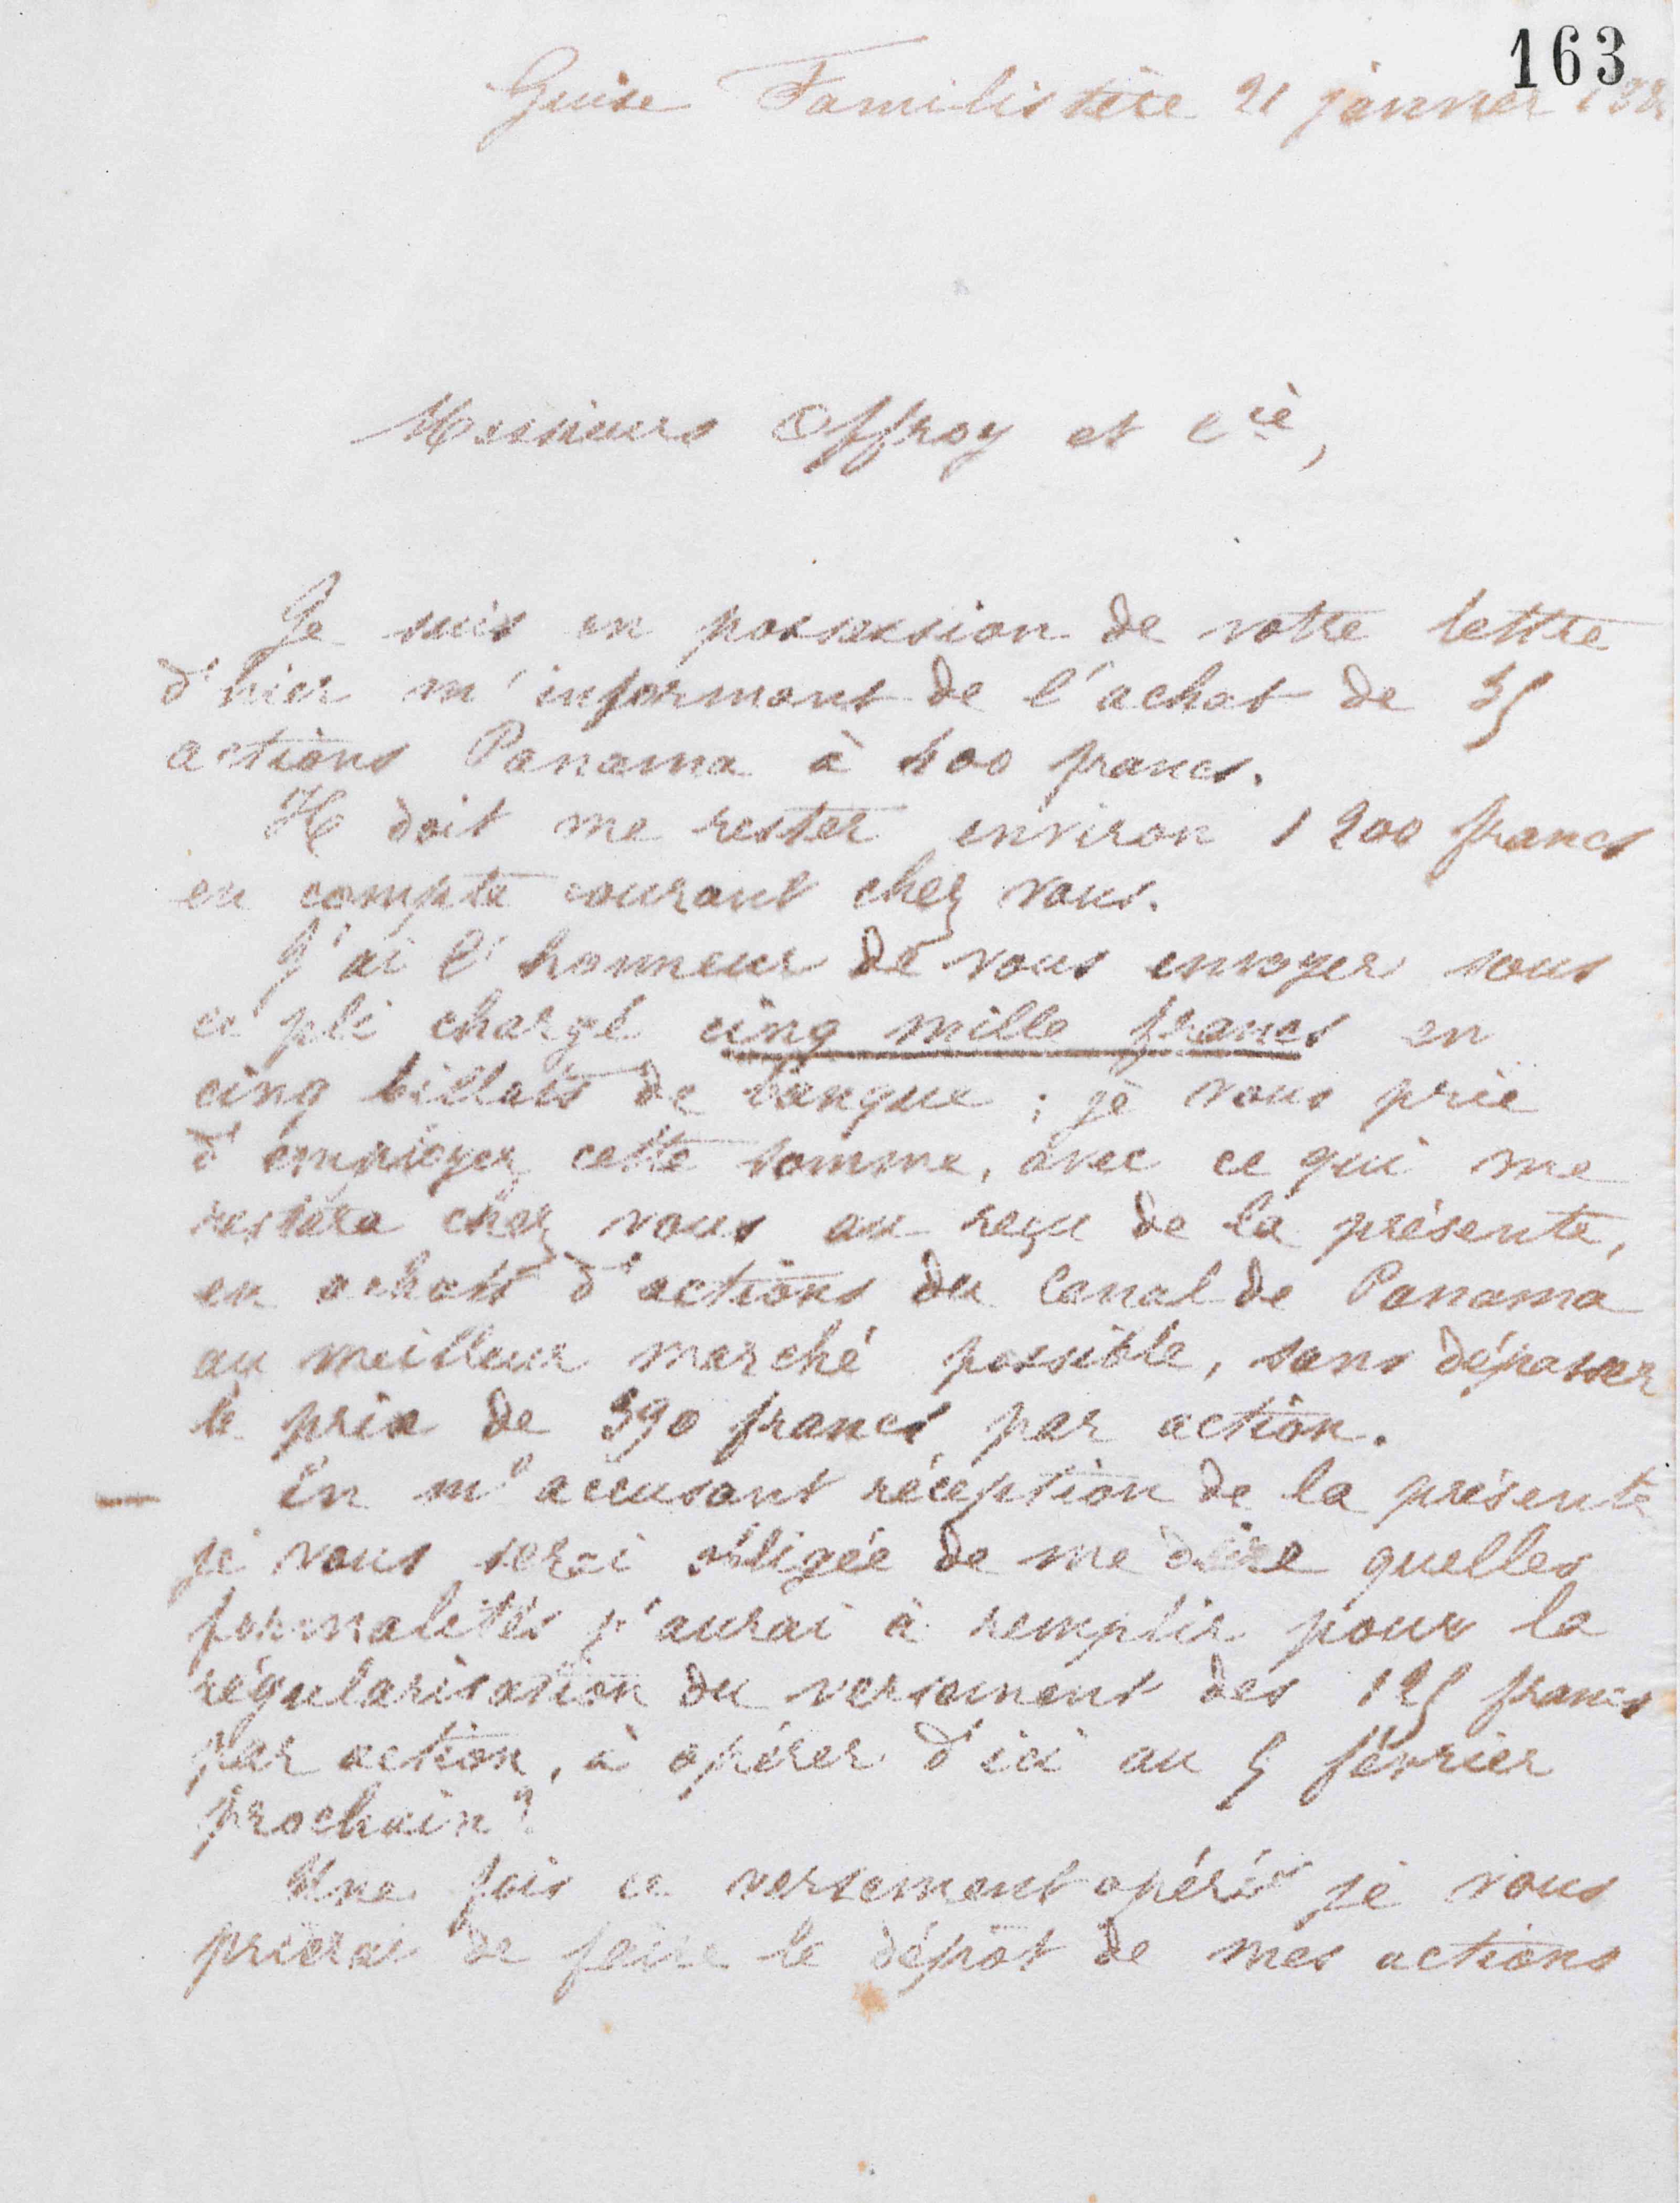 163
Guise Familistère 21 janvier
Messieurs Offroy et Cie,
Je suis en possession de votre lettre
d'hier m'informant de l'achat de 35
actions Panama à 400 francs.
Il doit me rester environ 1200 francs
en compte courant chez vous.
J'ai l'honneur de vous envoyer sous
ce pli chargé cinq mille francs en
cinq billets de banque ; je vous prie
d'employer cette somme, avec ce qui me
restera chez vous au reçu de la présente,
en achats d'actions du Canal de Panama
au meilleur marché possible, sans dépasser
le prix de 390 francs par action.
En m'accusant réception de la présente
je vous serai obligée de me dire quelles
formalités j'aurai à remplir pour la
régularisation du versement des 125 francs
par action, à opérer d'ici au 5 février
prochain ?
Une fois ce versement opéré je vous
prierai de faire le dépôt de mes actions